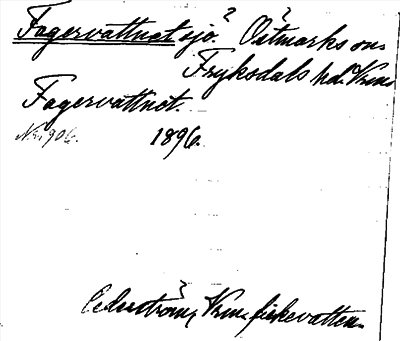 Fagervattnet sjö. Östmarks sn.
Fryksdals hd. Vrml.
Fagervattnet.
1896.
Cederström, Vrml. fiskevatten.